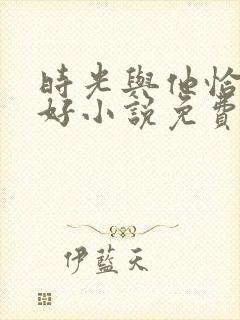 時光與他恰
好小說免費
伊藍天